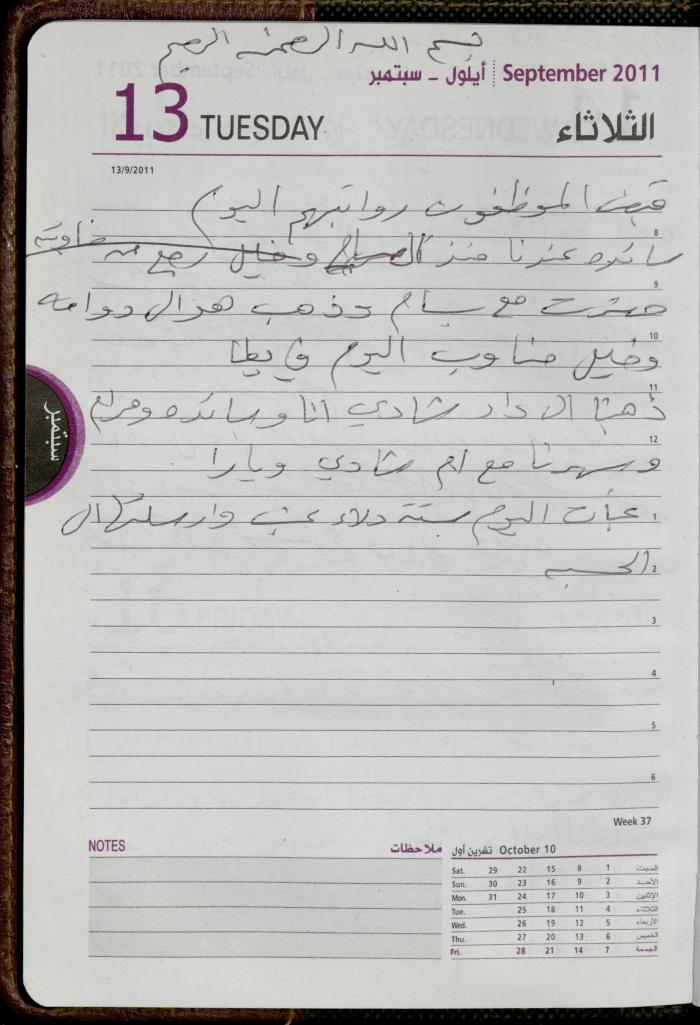 بسم الله الرحمن الرحيم
أيلول - سبتمبر September 2011
13 TUESDAY الثلاثاء
13/9/2011
قبض الموظفون رواتبهم اليوم
8
سائده عندنا منذ الصباح وخليل رجع من
9
مع بسام هو ال دوامه
10
وخليل مناوب اليوم في يطا
11
ذهبنا ال دار شادي انا وسائده ومرام
12
وسهرنا مع ام شادي ويارا
1 عبأت اليوم ستة عنب وارسلتها ال
2 الحسبه
3
4
5
6
سبتمبر
Week 37
NOTES ملاحظات
October 10 تشرين أول
Sat. 29 22 15 8 1 السبت
Sun. 30 23 16 9 2 الأحد
Mon. 31 24 17 10 3 الإثنين
Tue. 25 18 11 4 الثلاثاء
Wed. 26 19 12 5 الأربعاء
Thu. 27 20 13 6 الخميس
Fri. 28 21 14 7 الجمعة